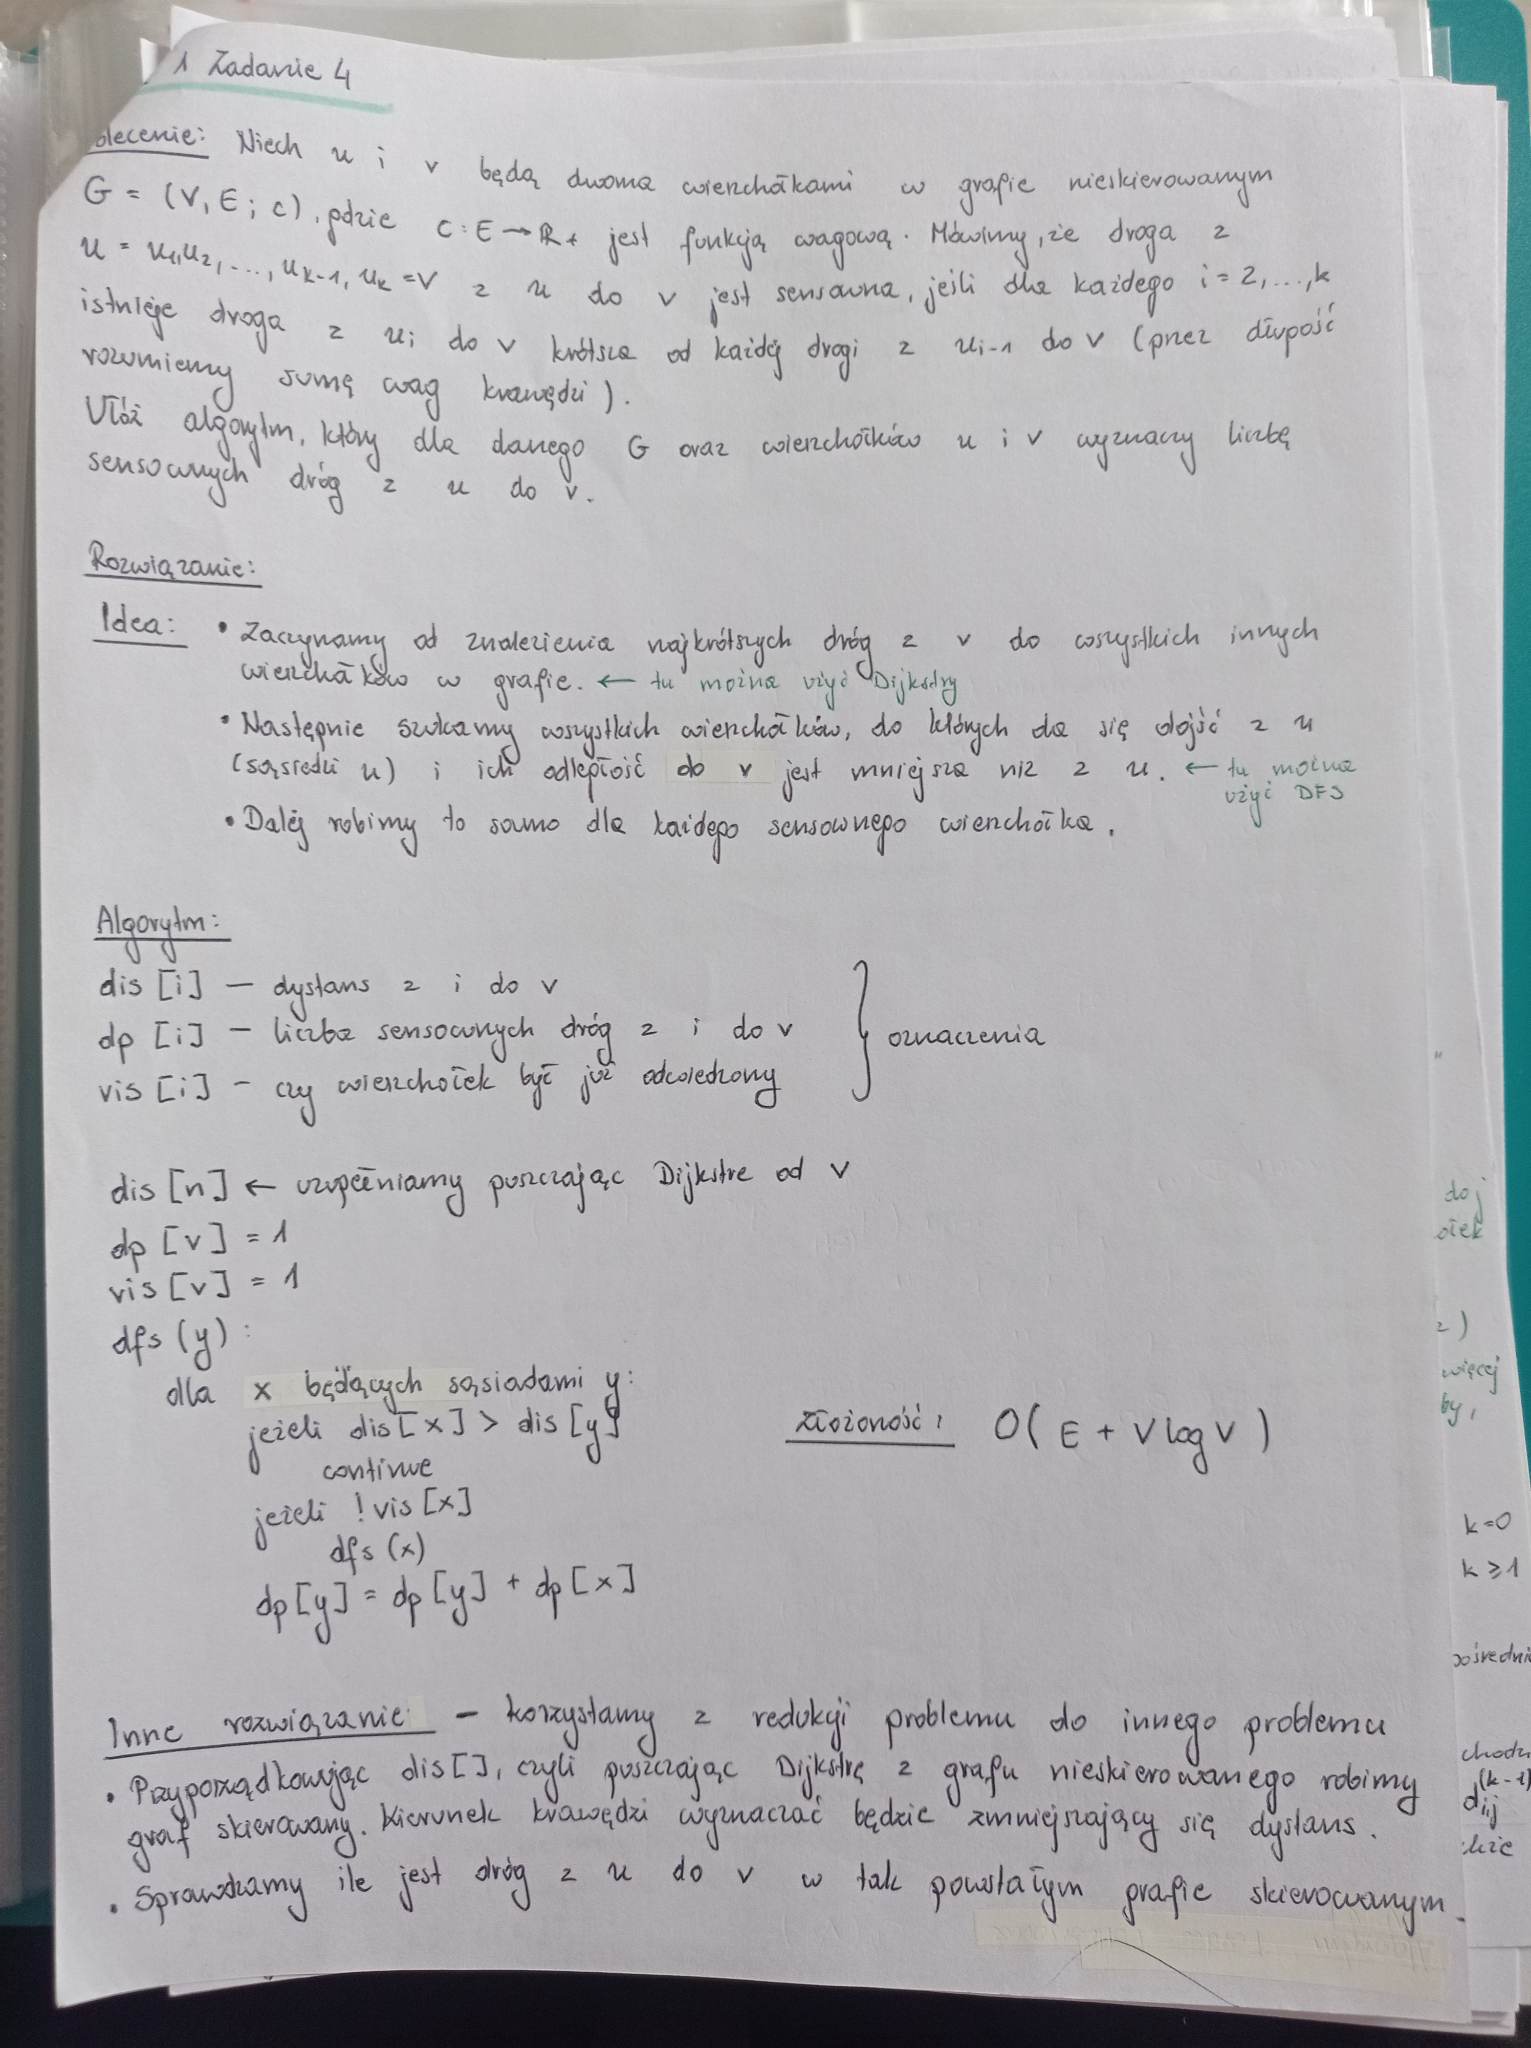 1 Zadanie 4
olecenie: Niech u i v będą dwoma wierzchołkami w grafie nieskierowanym
G = (V, E; c), gdzie c: E → R+ jest funkcją wagową. Mówimy, że droga z
u = u1, u2, ..., uk-1, uk = v z u do v jest sensowna, jeśli dla każdego i = 2, ..., k
istnieje droga z ui do v krótsza od każdej drogi z ui-1 do v (przez długość
rozumiemy sumę wag krawędzi).
Ułóż algorytm, który dla danego G oraz wierzchołków u i v wyznaczy liczbę
sensownych dróg z u do v.
Rozwiązanie:
Idea: • Zaczynamy od znalezienia najkrótszych dróg z v do wszystkich innych
wierzchołków w grafie. ← tu można użyć Dijkstry
• Następnie szukamy wszystkich wierzchołków, do których da się dojść z u
(sąsiedzi u) i ich odległość do v jest mniejsza niż z u. ← tu można
użyć DFS
• Dalej robimy to samo dla każdego sensownego wierzchołka.
Algorytm:
dis [i] — dystans z i do v
dp [i] — liczba sensownych dróg z i do v } oznaczenia
vis [i] — czy wierzchołek był już odwiedzony
dis [n] ← uzupełniamy puszczając Dijkstre od v
dp [v] = 1
vis [v] = 1
dfs (y):
dla x będących sąsiadami y:
jeżeli dis [x] > dis [y]
continue
jeżeli ! vis [x]
dfs (x)
dp [y] = dp [y] + dp [x]
złożoność: O( E + V log V )
Inne rozwiązanie — korzystamy z redukcji problemu do innego problemu
• Przyporządkowując dis[], czyli puszczając Dijkstrę z grafu nieskierowanego robimy
graf skierowany. Kierunek krawędzi wyznaczać będzie zmniejszający się dystans.
• Sprawdzamy ile jest dróg z u do v w tak powstałym grafie skierowanym.
do j
ołek
więcej
by,
k=0
k ≥ 1
ośredni
chodzi
d(k-1)
i,j